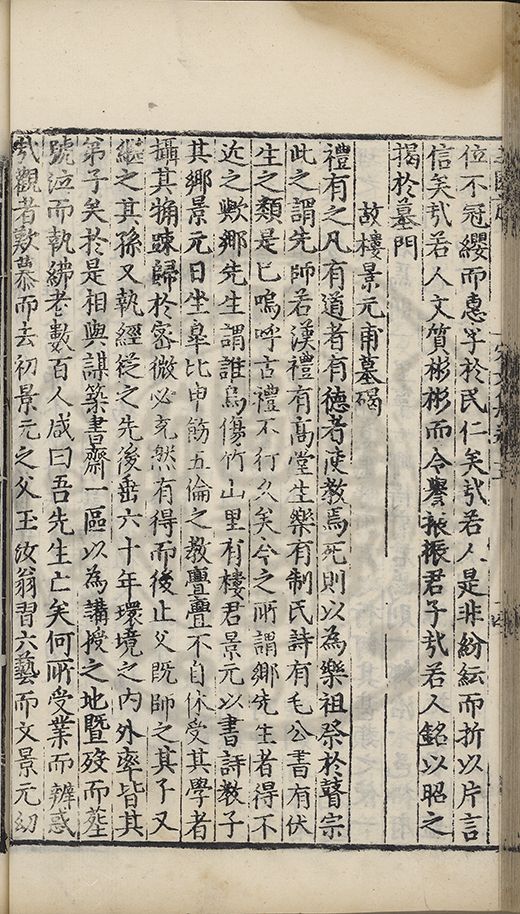 位不冠纓而惠孚於民仁矣㢤若人是非紛紜而折以片言
信矣㢤若人文質彬彬而令譽振振君子㢤若人銘以昭之
揭於墓門
故樓景元甫墓碣
禮有之凡有道者有德者使教焉死則以為樂祖祭於瞽宗
此之謂先師若漢禮有髙堂生樂有制民詩有毛公書有伏
生之類是巳嗚呼古禮不行久矣今之所謂鄉先生者得不
近之歟鄉先生謂誰烏傷竹山里有樓君景元以書詩教子
其鄉景元日坐皐比申飭五倫之教亹亹不自休受其學者
攝其觕踈歸於宻微必充然有得而後止父既師之其子又
繼之其孫又執經從之先後垂六十年環境之内外率皆其
弟子矣於是相與謀築書齋一區以為講授之地曁歿而塟
號泣而執紼者數百人咸曰吾先生亡矣何所受業而辨惑
㢤觀者歎慕而去初景元之父玉汝翁習六藝而文景元幼